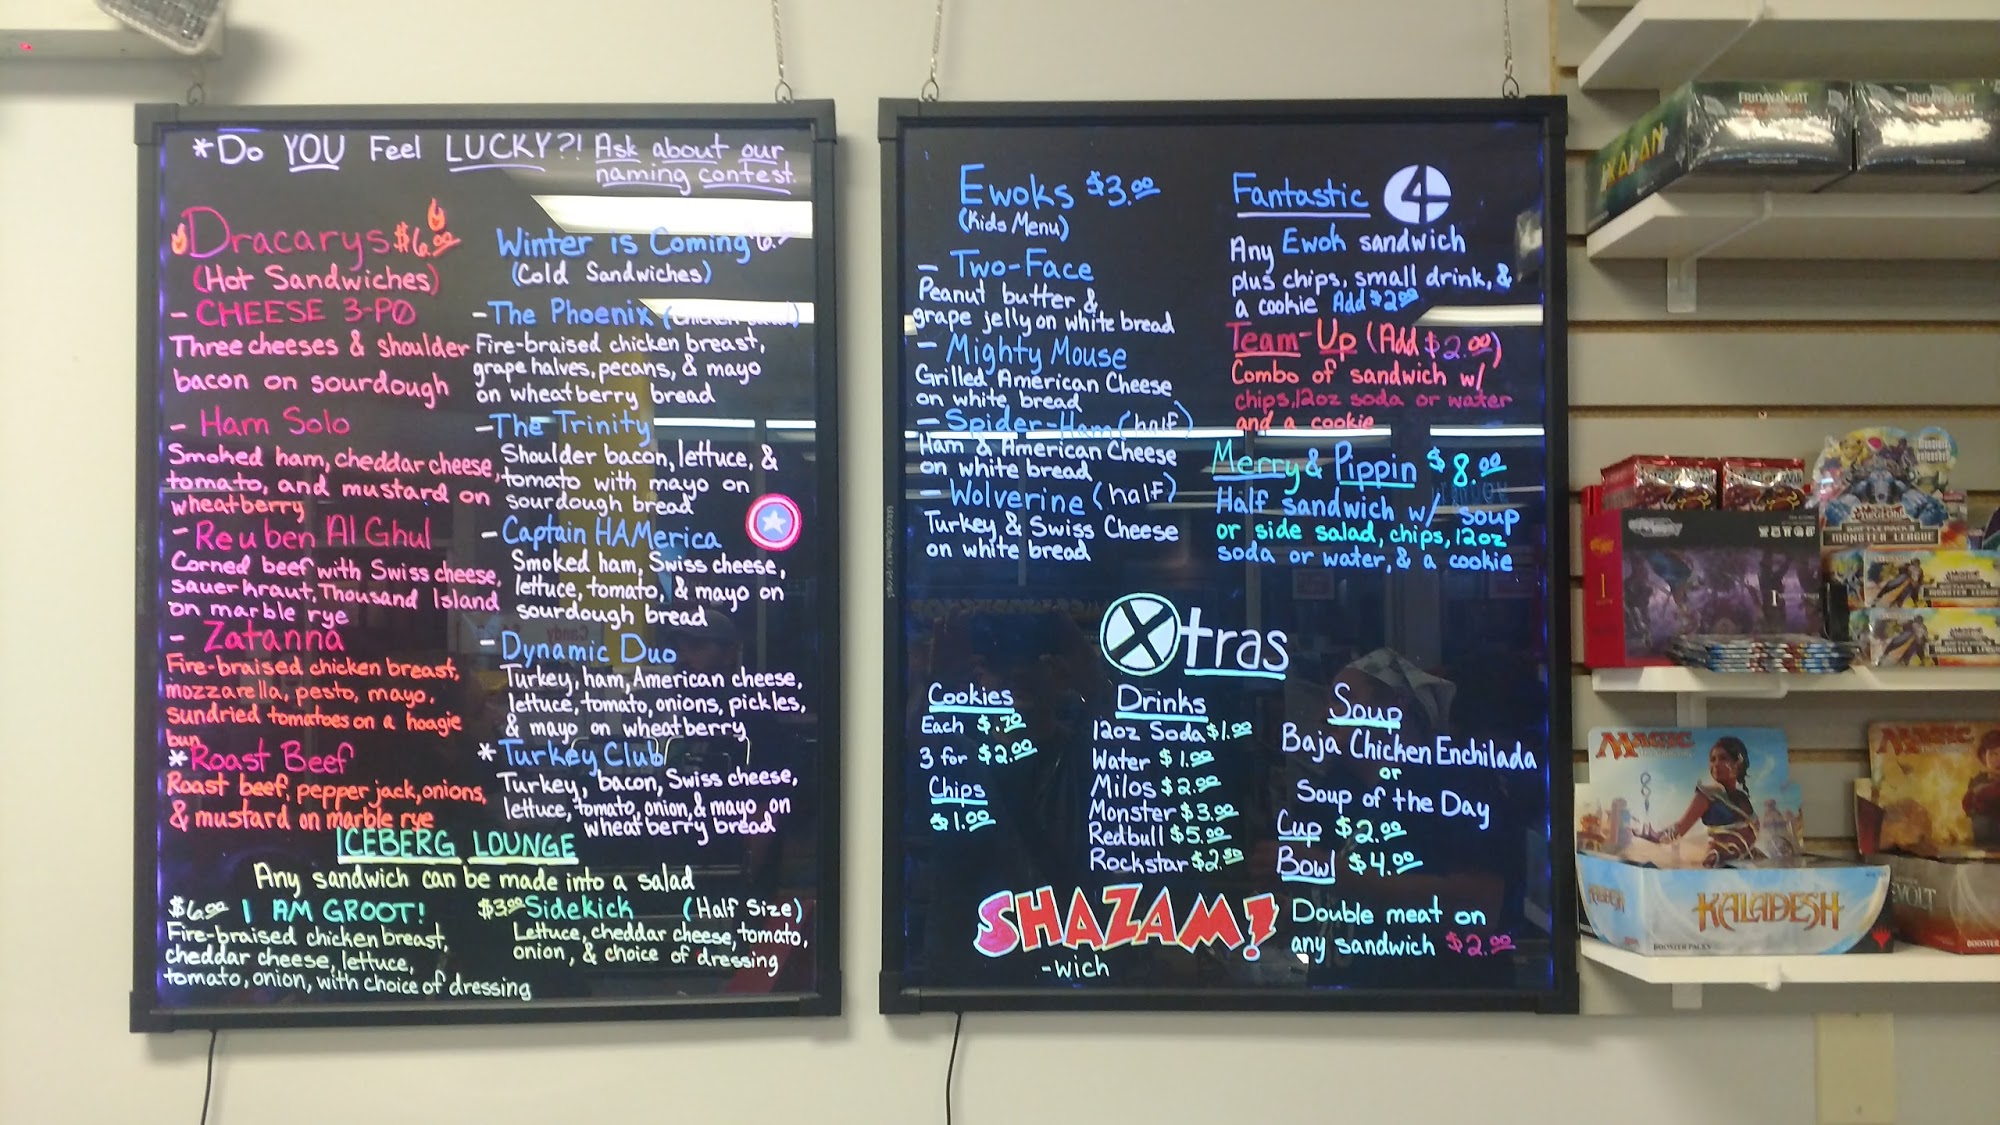 *Do YOU Feel LUCKY?! Ask about our
naming contest.
Dracarys $6.00
(Hot Sandwiches)
- CHEESE 3-PO
Three cheeses & shoulder
bacon on sourdough
- Ham Solo
Smoked ham, cheddar cheese,
tomato, and mustard on
wheatberry
- Reuben Al Ghul
Corned beef with Swiss cheese,
sauerkraut, Thousand Island
on marble rye
- Zatanna
Fire-braised chicken breast,
mozzarella, pesto, mayo,
sundried tomatoes on a hoagie
bun
*Roast Beef
Roast beef, pepper jack, onions,
& mustard on marble rye
Winter is Coming
(Cold Sandwiches)
- The Phoenix
Fire-braised chicken breast,
grape halves, pecans, & mayo
on wheatberry bread
- The Trinity
Shoulder bacon, lettuce, &
tomato with mayo on
sourdough bread
- Captain HAMerica
Smoked ham, Swiss cheese,
lettuce, tomato, & mayo on
sourdough bread
- Dynamic Duo
Turkey, ham, American cheese,
lettuce, tomato, onions, pickles,
& mayo on wheatberry
* Turkey Club
Turkey, bacon, Swiss cheese,
lettuce, tomato, onion, & mayo on
wheatberry bread
ICEBERG LOUNGE
Any sandwich can be made into a salad
$6.00 I AM GROOT!
Fire-braised chicken breast,
cheddar cheese, lettuce,
tomato, onion, with choice of dressing
$3.00 Sidekick (Half Size)
Lettuce, cheddar cheese, tomato,
onion, & choice of dressing
Ewoks $3.00
(Kids Menu)
- Two-Face
Peanut butter &
grape jelly on white bread
- Mighty Mouse
Grilled American Cheese
on white bread
- Spider-Ham (half)
Ham & American Cheese
on white bread
- Wolverine (half)
Turkey & Swiss Cheese
on white bread
Fantastic 4
Any Ewok sandwich
plus chips, small drink, &
a cookie Add $2.00
Team-Up (Add $2.00)
Combo of sandwich w/
chips, 12oz soda or water
and a cookie
Merry & Pippin $8.00
Half sandwich w/ soup
or side salad, chips, 12oz
soda or water, & a cookie
Xtras
Cookies
Each $.70
3 for $2.00
Chips
$1.00
Drinks
12oz Soda $1.00
Water $1.00
Milos $2.00
Monster $3.00
Redbull $5.00
Rockstar $2.50
Soup
Baja Chicken Enchilada
or
Soup of the Day
Cup $2.00
Bowl $4.00
SHAZAM!
-wich
Double meat on
any sandwich $2.00
FRIDAY NIGHT
FRIDAY NIGHT
MONSTER LEAGUE
MAGIC
KALADESH
BOOSTER PACKS
MAGIC